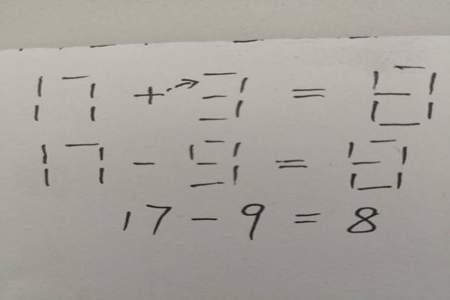 17 + 3 = 8
17 - 9 = 8
17 - 9 = 8